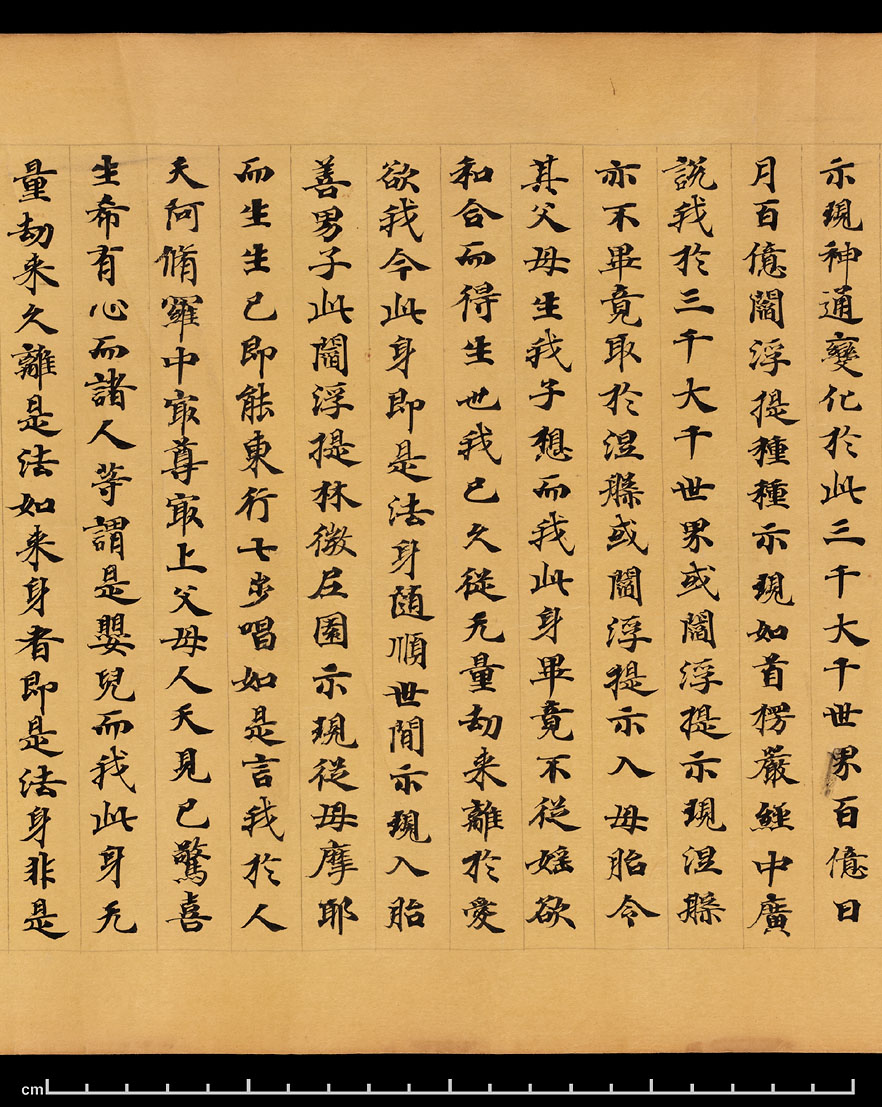 示現神通變化於此三千大千世界百億日
月百億閻浮提種種示現如首楞嚴經中廣
說我於三千大千世界或閻浮提示現涅槃
亦不畢竟取於涅槃或閻浮提示入母胎令
其父母生我子想而我此身畢竟不從婬欲
和合而得生也我已久從无量劫來離於愛
欲我今此身即是法身隨順世間示現入胎
善男子此閻浮提林微尼園示現從母摩耶
而生生已即能東行七步唱如是言我於人
天阿脩羅中㝡尊㝡上父母人天見已驚喜
生希有心而諸人等謂是嬰兒而我此身无
量劫来久離是法如来身者即是法身非是
cm